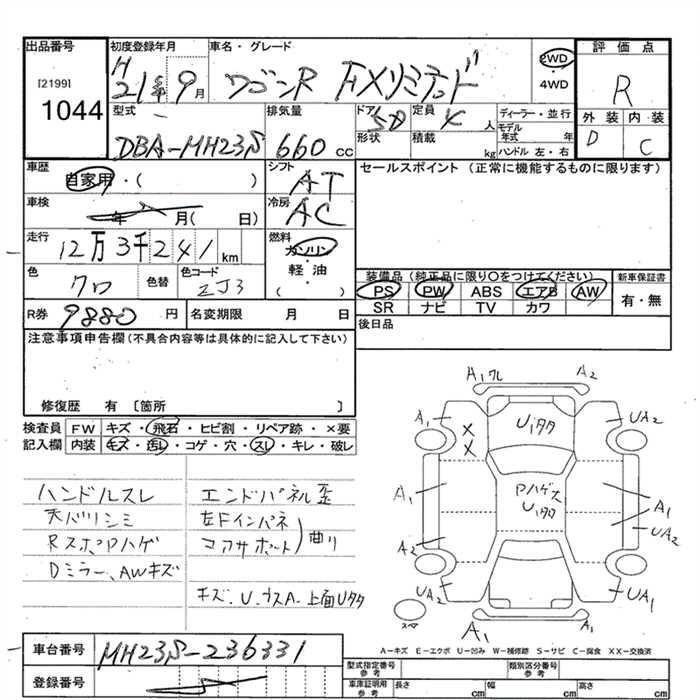 出品番号 初度登録年月 車名・グレード 評価点
[2199] H 21年 9月 ワゴンR FXリミテッド 2WD ・ 4WD R
1044
型式 排気量 ドア 5D 定員 4人 ディーラー・並行 外装 内装
DBA-MH23S 660cc 形状 積載 kg モデル年式 年 D C
ハンドル 左・右
車歴 自家用・( ) シフト AT セールスポイント (正常に機能するものに限ります)
車検 年 月( 日) 冷房 AC
走行 12万3千241km 燃料 ガソリン
軽・油
( )
色 クロ 色替 色コード ZJ3
装備品 (純正品に限り○をつけてください) 新車保証書
PS PW ABS エアB AW 有・無
SR ナビ TV カワ
R券 9880円 名変期限 月 日 後日品
注意事項申告欄(不具合内容等は具体的に記入して下さい)
修復歴 有 〔箇所 〕
検査員 FW キズ・飛石・ヒビ割・リペア跡・×要
記入欄 内装 キズ・汚レ・コゲ・穴・スレ・キレ・破レ
ハンドルスレ エンドパネル歪
天バリシミ 左Fインパネ
RスポPハゲ コアサポット 曲リ
Dミラー、AWキズ
キズ、U、サスA、上面Uタタ
A1ワレ A2
A1 × × U1タタ UA2
A1 Pハゲス U1タタ A1
A2 UA2
UA2 UA1
スペ A1 A1
A-キズ E-エクボ U-凹み W-補修跡 S-サビ C-腐食 XX-交換済
車台番号 MH23S-236331
登録番号
型式指定番号 参考 類別区分番号 参考
車庫証明用 参考 長さ cm 幅 cm 高さ cm